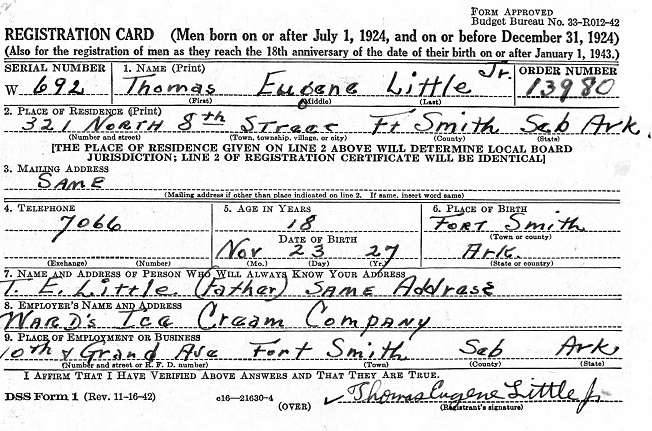 FORM APPROVED
Budget Bureau No. 33-R012-42
REGISTRATION CARD (Men born on or after July 1, 1924, and on or before December 31, 1924)
(Also for the registration of men as they reach the 18th anniversary of the date of their birth on or after January 1, 1943.)
SERIAL NUMBER 1. NAME (Print) ORDER NUMBER
W 692 Thomas Eugene Little Jr. 13980
(First) (Middle) (Last)
2. PLACE OF RESIDENCE (Print)
321 North 8th Street Ft Smith Seb Ark.
(Number and street) (Town, township, village, or city) (County) (State)
[THE PLACE OF RESIDENCE GIVEN ON LINE 2 ABOVE WILL DETERMINE LOCAL BOARD
JURISDICTION; LINE 2 OF REGISTRATION CERTIFICATE WILL BE IDENTICAL]
3. MAILING ADDRESS
SAME
(Mailing address if other than place indicated on line 2. If same, insert word same)
4. TELEPHONE 5. AGE IN YEARS 6. PLACE OF BIRTH
7066 18 Fort Smith
DATE OF BIRTH (Town or county)
Nov 23 27 Ark.
(Exchange) (Number) (Mo.) (Day) (Yr.) (State or country)
7. NAME AND ADDRESS OF PERSON WHO WILL ALWAYS KNOW YOUR ADDRESS
T. E. Little (Father) SAME Address
8. EMPLOYER'S NAME AND ADDRESS
Ward's Ice Cream Company
9. PLACE OF EMPLOYMENT OR BUSINESS
10th & Grand Ave Fort Smith Seb Ark
(Number and street or R. F. D. number) (Town) (County) (State)
I AFFIRM THAT I HAVE VERIFIED ABOVE ANSWERS AND THAT THEY ARE TRUE.
DSS Form 1 (Rev. 11-16-42) c16—21630-4 ✓ Thomas Eugene Little Jr
(OVER) (Registrant's signature)